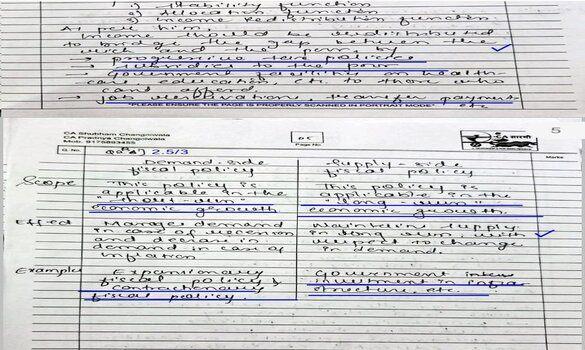 1) Stability function
2) Allocation function
3) Income Redistribution function
As per him,
income should be redistributed
to bridge the gap between the
rich and the poor, by
→ progressive tax policies
→ subsidies to the poor
→ Government facilities on health
care, education, etc. to those who
cant afford.
→ job reservation, transfer payments
etc
"PLEASE ENSURE THE PAGE IS PROPERLY SCANNED IN PORTRAIT MODE"
CA Shubham Changoiwala
CA Pradnya Changoiwala
Mob. 9176893455
05
Page No.
5
Q. No.
2.5/3
Marks
Demand-side fiscal policy
Supply-side fiscal policy
Scope
This policy is applicable in the "short-run" economic growth
This policy is applicable in the "long-run" economic growth.
Effect
demand in case of recession and decrease in demand in case of inflation
supply in long run with respect to change in demand.
Example
Expansionary fiscal policy & contractionary fiscal policy.
Government investment in infrastructure etc.